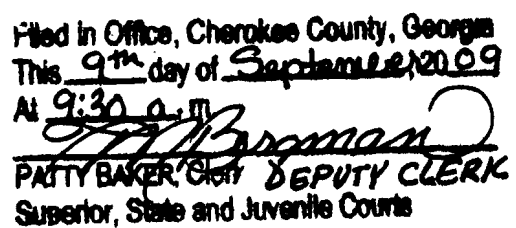 Filed in Office, Cherokee County, Georgia
This 9th day of September, 2009
At 9:30 a.m
Bergman
PATTY BAKER, Clerk DEPUTY CLERK
Superior, State and Juvenile Courts